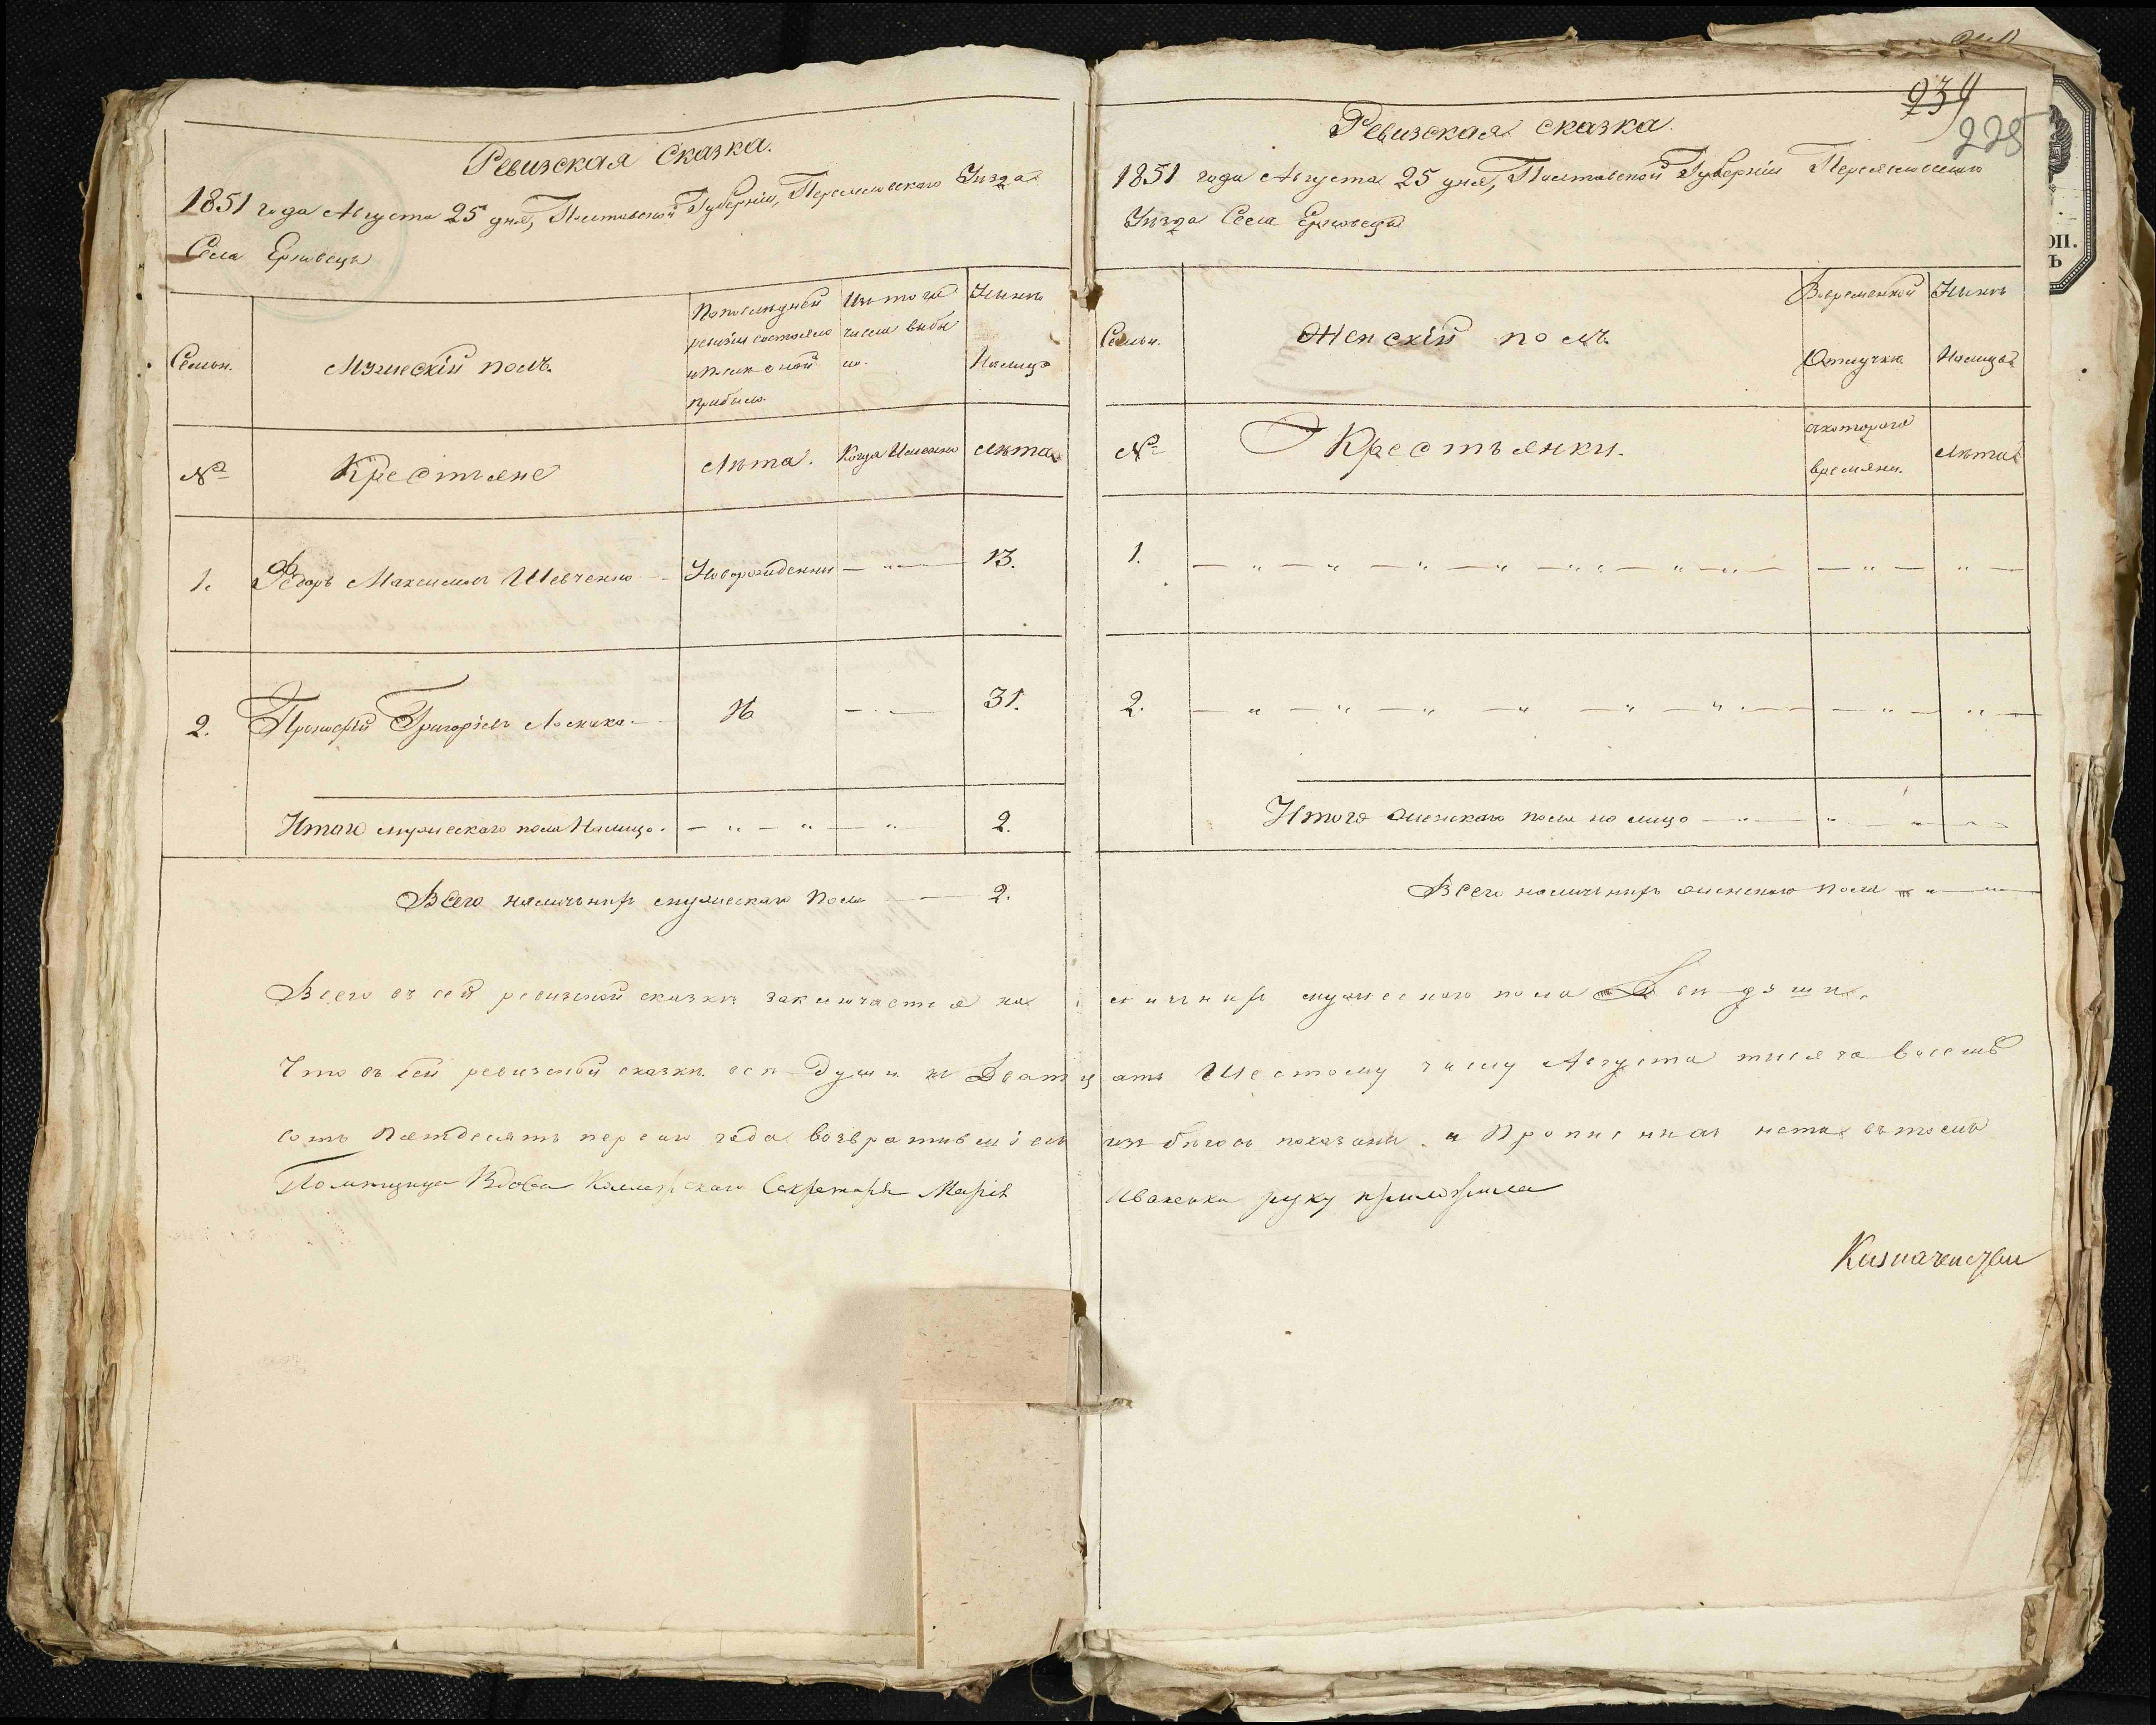 Ревизская Сказка.
1851 года Августа 25 дня, Полтавской Губерніи, Переяславскаго Уѣзда
Села Ерковецъ
Семьи.
Мужескій полъ.
По последней
ревизіи состояло
и после оной
прибыло.
Изъ того
числа выбы
ло.
Нынѣ
На лицо
№
Крестьяне
Лѣта.
Когда Именно
Лѣта
1.
Федоръ Максимовъ Шевченко
Новорожденны
13.
2.
Прокофій Григоріевъ
16
31.
Итого мужескаго пола На лицо.
2.
Всего наличныхъ мужескаго Пола
2.
939
228
Ревизская сказка.
1851 года Августа 25 дня, Полтавской Губерніи Переяславскаго
Уѣзда Села Ерковецъ
Семьи.
Женскій полъ.
Вовременной
Отлучке
Нынѣ
На лицо
№
Крестьянки.
съкоторого
времяни.
Лѣта
1.
2.
Итого женскаго пола на лицо
Всего наличныхъ женскаго пола
ОП.
Ъ
Всего въ сей ревизской сказкѣ заключается на личныхъ мужескаго пола Две души.
Что въ сей ревизской сказки все Души къ Дватцать Шестому числу Августа тысяча восемь
сотъ Пятдесятъ первого года возвратившіеся изъ бѣговъ показаны и Прописныхъ нета въ томъ
Помѣщица Вдова Коллежскаго Секретаря Марія Иваненкова руку приложила